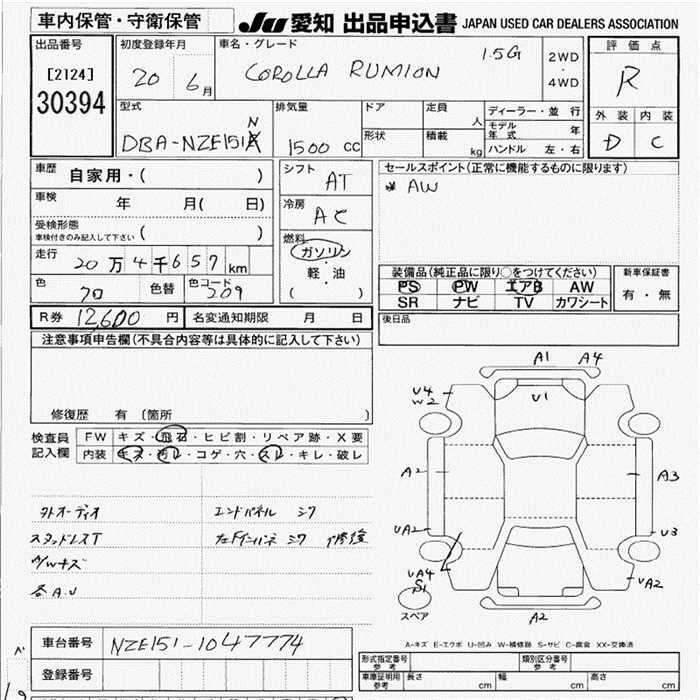 車内保管・守衛保管
JU 愛知 出品申込書 JAPAN USED CAR DEALERS ASSOCIATION
出品番号
[2124]
30394
初度登録年月
20 6月
車名・グレード
1.5G
COROLLA RUMION
2WD
・
4WD
評価点
R
外装 内装
D C
型式
N
DBA-NZE151
排気量
1500 cc
ドア
形状
定員
人
積載
kg
ディーラー・並行
モデル
年式 年
ハンドル 左・右
車歴
自家用・( )
車検
年 月( 日)
受検形態
車検付きのみ記入して下さい ( )
走行
20万4千657km
色
色替
色コード
209
シフト
AT
冷房
AC
燃料
ガソリン
・
軽・油
( )
セールスポイント(正常に機能するものに限ります)
AW
装備品(純正品に限り○をつけてください)
PS PW エアB AW
SR ナビ TV カワシート
新車保証書
有・無
R券 12,600 円 名変通知期限 月 日
後日品
注意事項申告欄(不具合内容等は具体的に記入して下さい)
修復歴 有 〔箇所 〕
検査員
記入欄
FW キズ・飛石・ヒビ割・リペア跡・X要
内装 キズ・汚レ・コゲ・穴・スレ・キレ・破レ
外オーディオ
エンドパネル
スタッドレスT
修復
W/Wキズ
各A.U
A1 A4
U4
W2
U1
A2
A3
UA2
U3
UA4
S1
UA2
A2
スペア
A-キズ E-エクボ U-凹み W-補修跡 S-サビ C-腐食 XX-交換済
車台番号 NZE151-1047774
登録番号
形式指定番号
参考
類別区分番号
参考
車庫証明用
参考
長さ cm 幅 cm 高さ cm